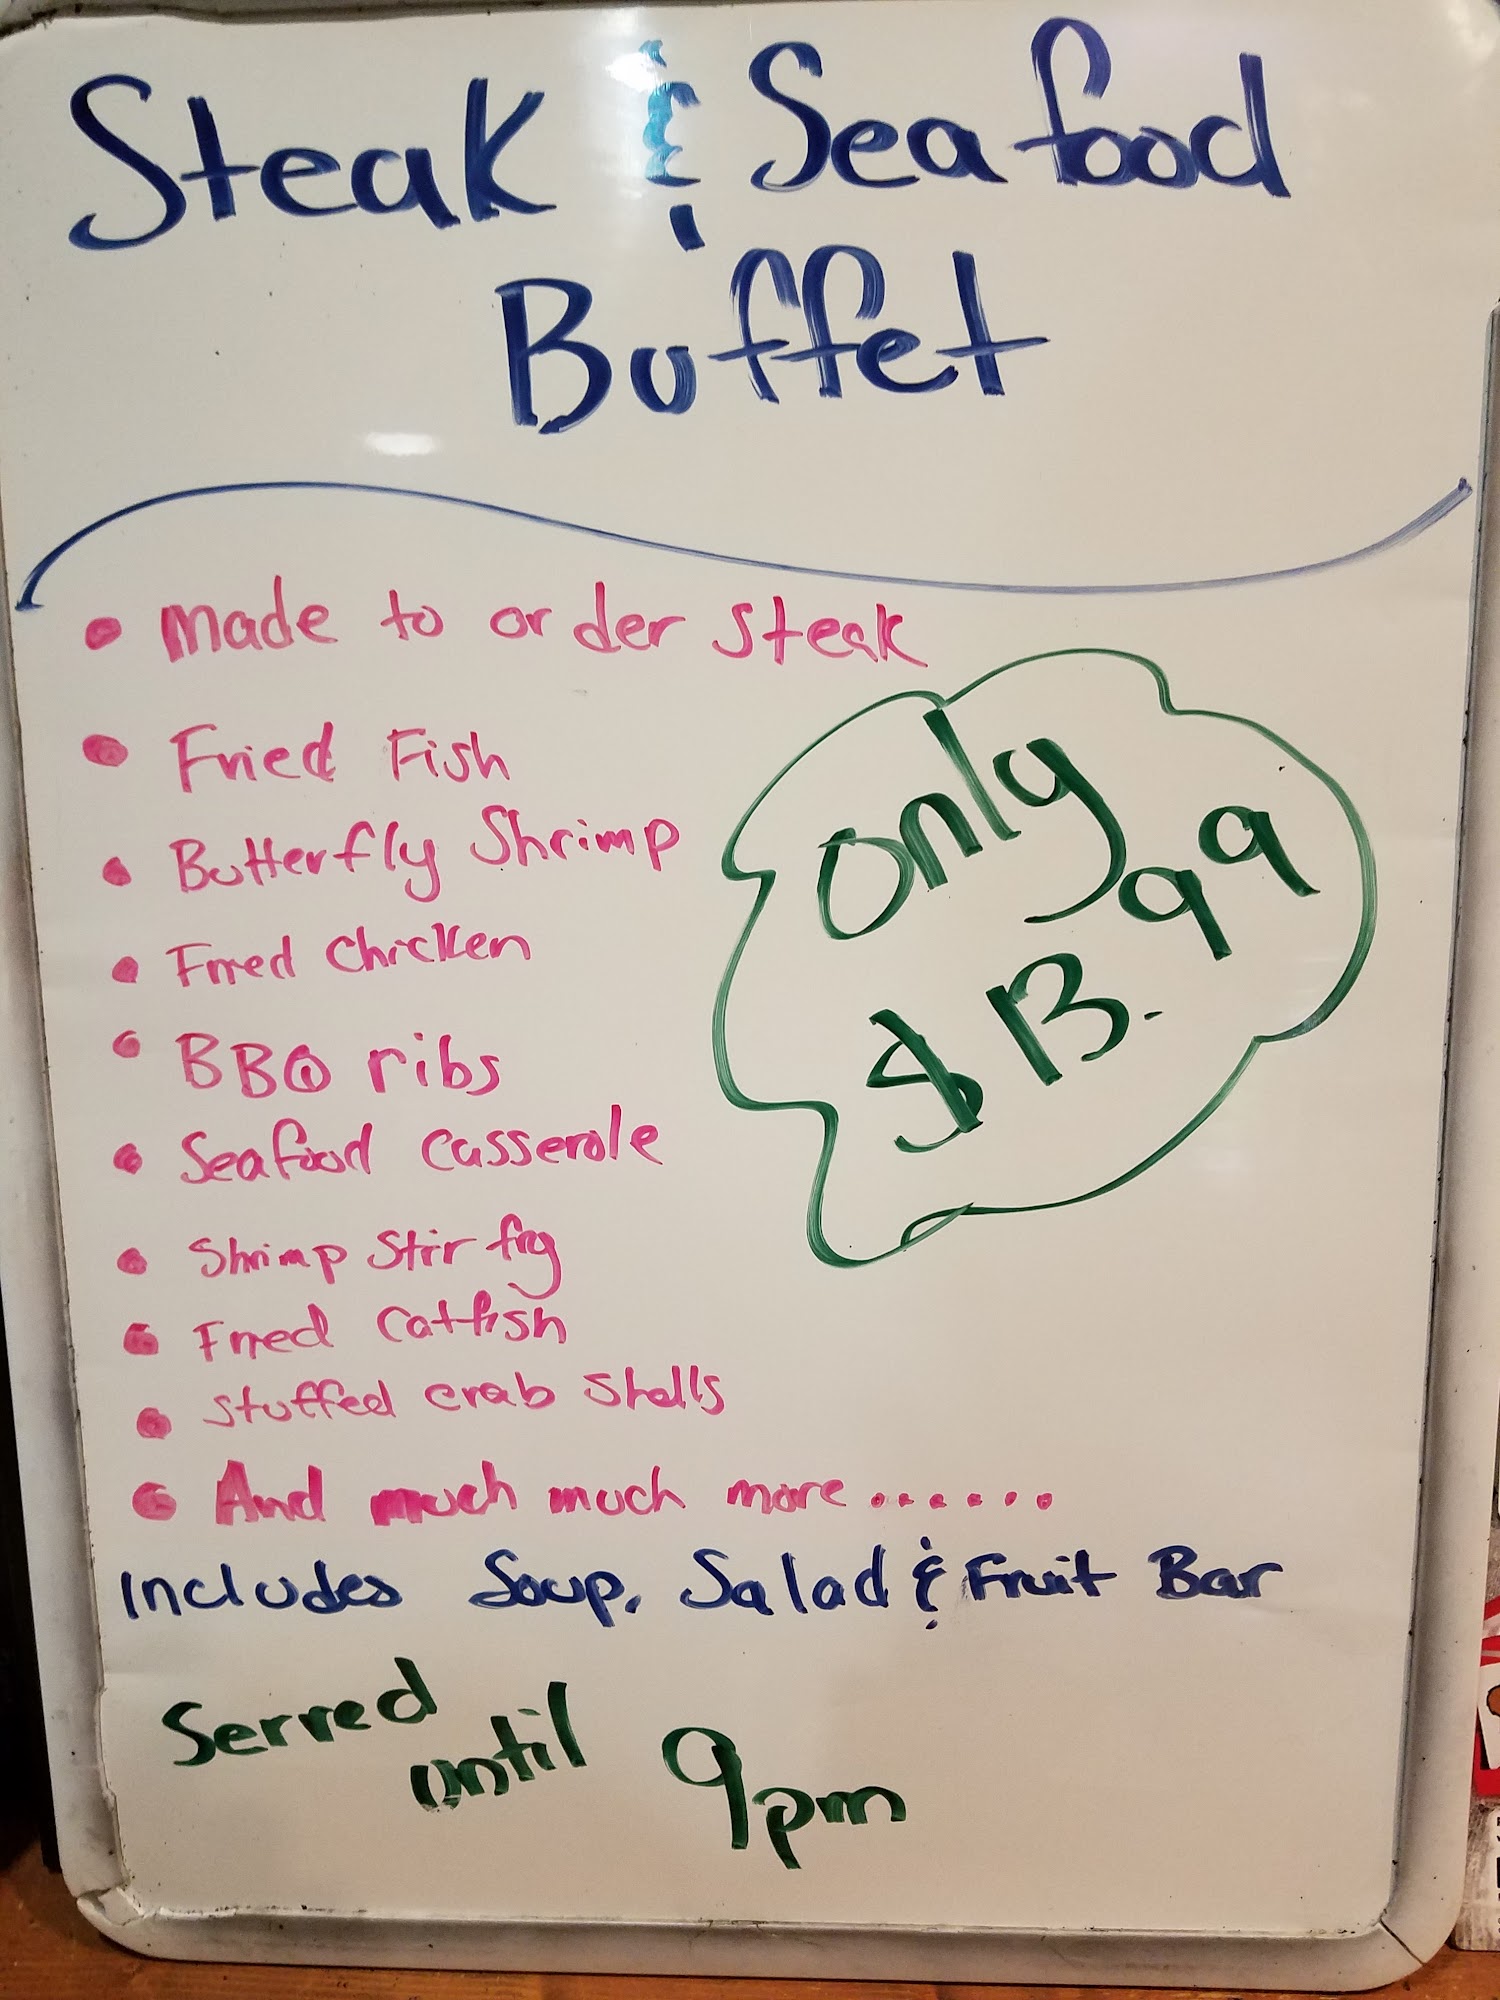 Steak & Seafood
Buffet
• made to order steak
• Fried Fish
• Butterfly Shrimp
• Fried Chicken
• BBQ ribs
• Seafood Casserole
• Shrimp Stir fry
• Fried Catfish
• Stuffed crab shells
• And much much more.......
only
$13.99
Includes Soup, Salad & Fruit Bar
Served
until 9pm